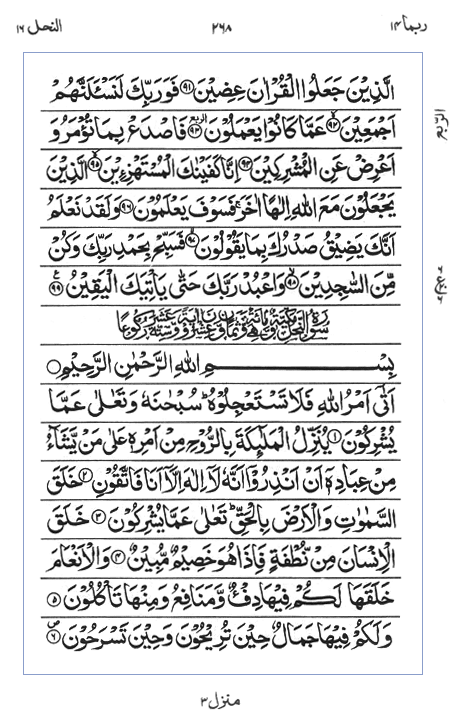 ربما ١٤
٢٦٨
النحل ١٦
الَّذِيْنَ جَعَلُوا الْقُرْاٰنَ عِضِيْنَ ﴿٩١﴾ فَوَرَبِّكَ لَنَسْـَٔلَنَّهُمْ
اَجْمَعِيْنَ ﴿٩٢﴾ عَمَّا كَانُوْا يَعْمَلُوْنَ ﴿٩٣﴾ فَاصْدَعْ بِمَا تُؤْمَرُ وَ
اَعْرِضْ عَنِ الْمُشْرِكِيْنَ ﴿٩٤﴾ اِنَّا كَفَيْنٰكَ الْمُسْتَهْزِءِيْنَ ﴿٩٥﴾ الَّذِيْنَ
يَجْعَلُوْنَ مَعَ اللّٰهِ اِلٰهًا اٰخَرَ ۚ فَسَوْفَ يَعْلَمُوْنَ ﴿٩٦﴾ وَلَقَدْ نَعْلَمُ
اَنَّكَ يَضِيْقُ صَدْرُكَ بِمَا يَقُوْلُوْنَ ﴿٩٧﴾ فَسَبِّحْ بِحَمْدِ رَبِّكَ وَكُنْ
مِّنَ السّٰجِدِيْنَ ﴿٩٨﴾ وَاعْبُدْ رَبَّكَ حَتّٰى يَاْتِيَكَ الْيَقِيْنُ ﴿٩٩﴾
بِسْمِ اللّٰهِ الرَّحْمٰنِ الرَّحِيْمِ ○
اَتٰۤى اَمْرُ اللّٰهِ فَلَا تَسْتَعْجِلُوْهُ ؕ سُبْحٰنَهٗ وَتَعٰلٰى عَمَّا
يُشْرِكُوْنَ ﴿١﴾ يُنَزِّلُ الْمَلٰٓئِكَةَ بِالرُّوْحِ مِنْ اَمْرِهٖ عَلٰى مَنْ يَّشَآءُ
مِنْ عِبَادِهٖۤ اَنْ اَنْذِرُوْۤا اَنَّهٗ لَاۤ اِلٰهَ اِلَّاۤ اَنَا فَاتَّقُوْنِ ﴿٢﴾ خَلَقَ
السَّمٰوٰتِ وَالْاَرْضَ بِالْحَقِّ ؕ تَعٰلٰى عَمَّا يُشْرِكُوْنَ ﴿٣﴾ خَلَقَ
الْاِنْسَانَ مِنْ نُّطْفَةٍ فَاِذَا هُوَ خَصِيْمٌ مُّبِيْنٌ ﴿٤﴾ وَالْاَنْعَامَ
خَلَقَهَا ۚ لَكُمْ فِيْهَا دِفْءٌ وَّمَنَافِعُ وَمِنْهَا تَاْكُلُوْنَ ﴿٥﴾
وَلَكُمْ فِيْهَا جَمَالٌ حِيْنَ تُرِيْحُوْنَ وَحِيْنَ تَسْرَحُوْنَ ﴿٦﴾
منزل ٣
الربع